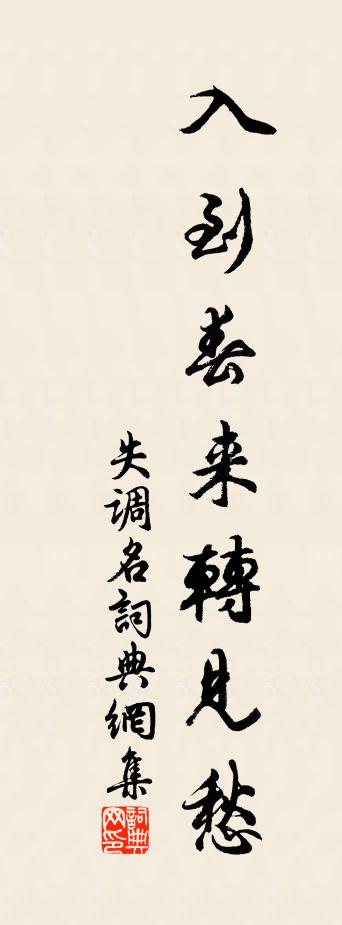 入到春来轉見愁
失调名詞典網集
詞典网印